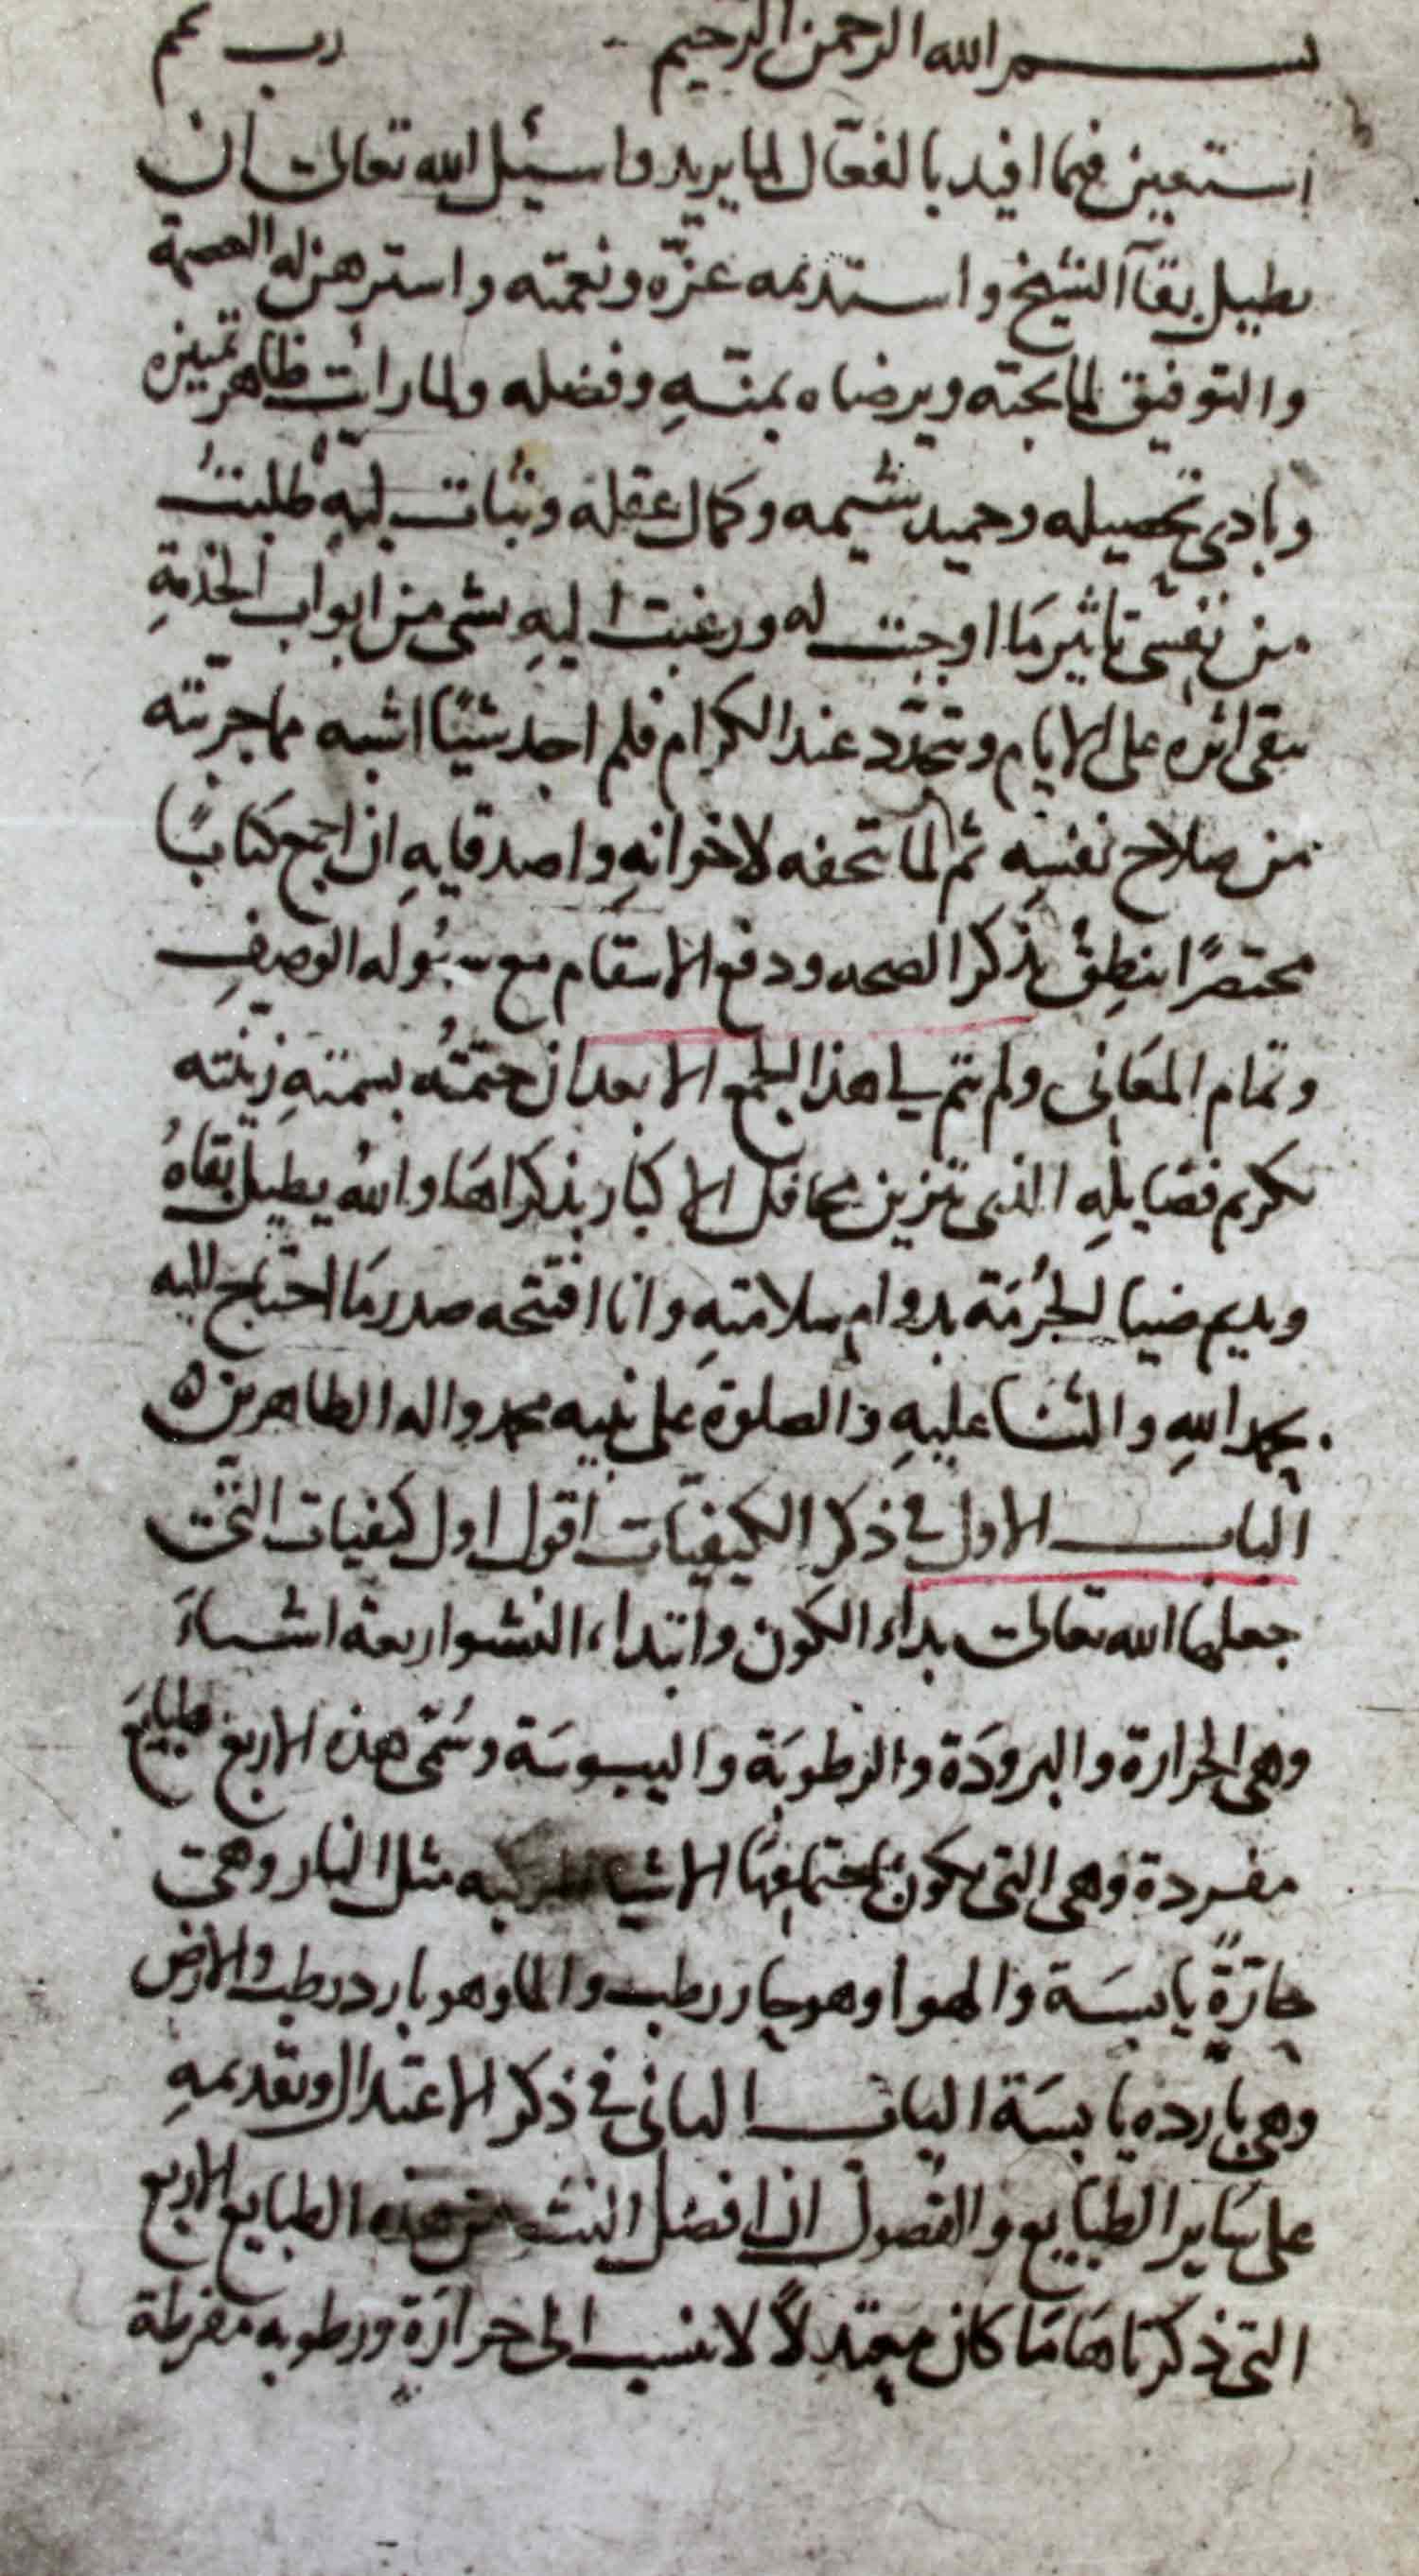 بسم الله الرحمن الرحيم رب تمم
استعين فيما افيد بالفعّال لما يريد واسئيل الله تعالى ان
يطيل بقآ الشيخ واستديمه عزّه ونعمته واسترهن له العصمة
والتوفيق لما يحبّه ويرضاه بمنّهِ وفضله ولما رأيت ظاهر تميزه
وبادى تحصيله وحميد شيمه وكمال عقله وثبات لبهِ طلبتُ
من نفسى تاثير مَا اوجبت له ورغبت اليهِ بشى من ابواب الخدمةِ
يبقى اثره على الايام وتجدّد عند الكرام فلم اجد شيئًا اشبه مما جربته
من صلاح نفسِه ثم لما تحفه لاخوانهِ واصدقايهِ ان اجمع كتابًا
مختصرًا ينطِقُ بذكر الصحه ودفع الاسقام مع سهُوله الوصِفِ
وتمام المعَانى ولم يتم لى هذا الجمع الا بعد ان ختمتُه بسمتهِ زينته
بكرم فضايلهِ الذى تتزين محافل الاكبار بذكراهَا والله يطيل بقاهُ
ويديم ضيا الحُرمَة بدوام سلامتهِ وانا افتتحه صدر مَا احتاج اليه
بحمد اللهِ والثنا عليهِ والصلوة على نبيه محمد واله الطاهرين ه
الباب الاول فى ذكر الكيفيّات اقول اول كيفيات التى
جعلها الله تعالى بداء الكون وابتداء النشو اربعة اشياءَ
وهى الحرارة والبرودَة والرطوبَة واليبوسَة وسُمّى هذه الاربع طبايعَ
مفردة وهى التى يكون باجتماعهَا الاشيا المركبه مثل النار وهى
حارّةً يابسَة والهوا وهو حار رطب والما وهو بارد رطب والارض
وهى بارده يابسَة الباب الثانى فى ذكر الاعتدال وتقديمهِ
على سَاير الطبَايع والفصول ان افضل النشو من هذه الطبايع الاربع
التى ذكرناهَا مَا كان معتدلاً لا ينسب الى حرارَة ورطوبه مفرطة